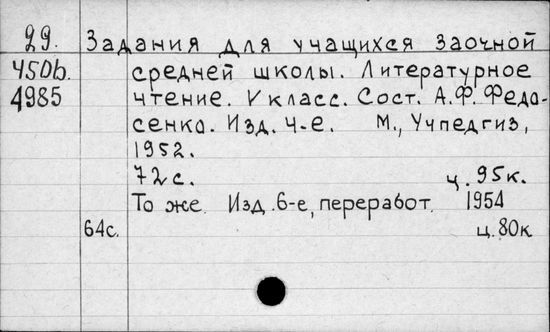 29. Задания для учащихся заочной
450ь. средней школы. Литературное
4985 чтение. V класс. Сост. А.Ф. Федо-
сенко. Изд. 4-е. М., Учпедгиз,
1952.
72 с. ц. 95к.
То же. Изд. 6-е, переработ. 1954
64с. ц. 80к